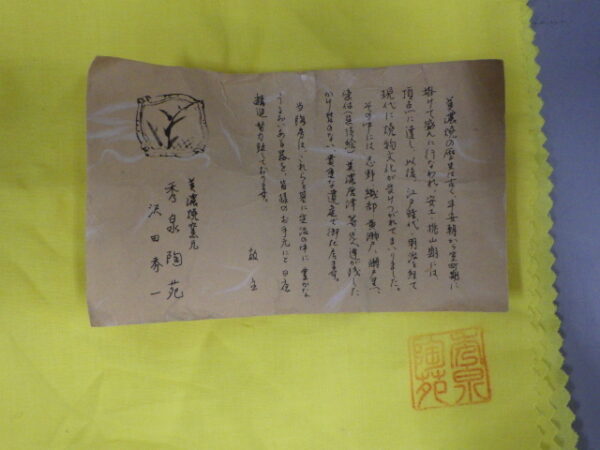 美濃焼の歴史は古く平安朝から室町期に
掛けて盛んに行なわれ、安土、桃山期には
頂点に達し、以後、江戸時代、明治を経て
現代に焼物文化が受けつがれてまいりました。
その中には志野、織部、黄瀬戸、瀬戸黒、
美濃唐津、等先人達が残した
貴重な遺産で御座居ます。
当陶房は、これらを基に生活の中に豊かな
うるおいある器を、皆様のお手元にと日夜
精進努力致しております。
敬具
美濃焼窯元
秀泉陶苑
沢田秀一
秀泉
陶苑